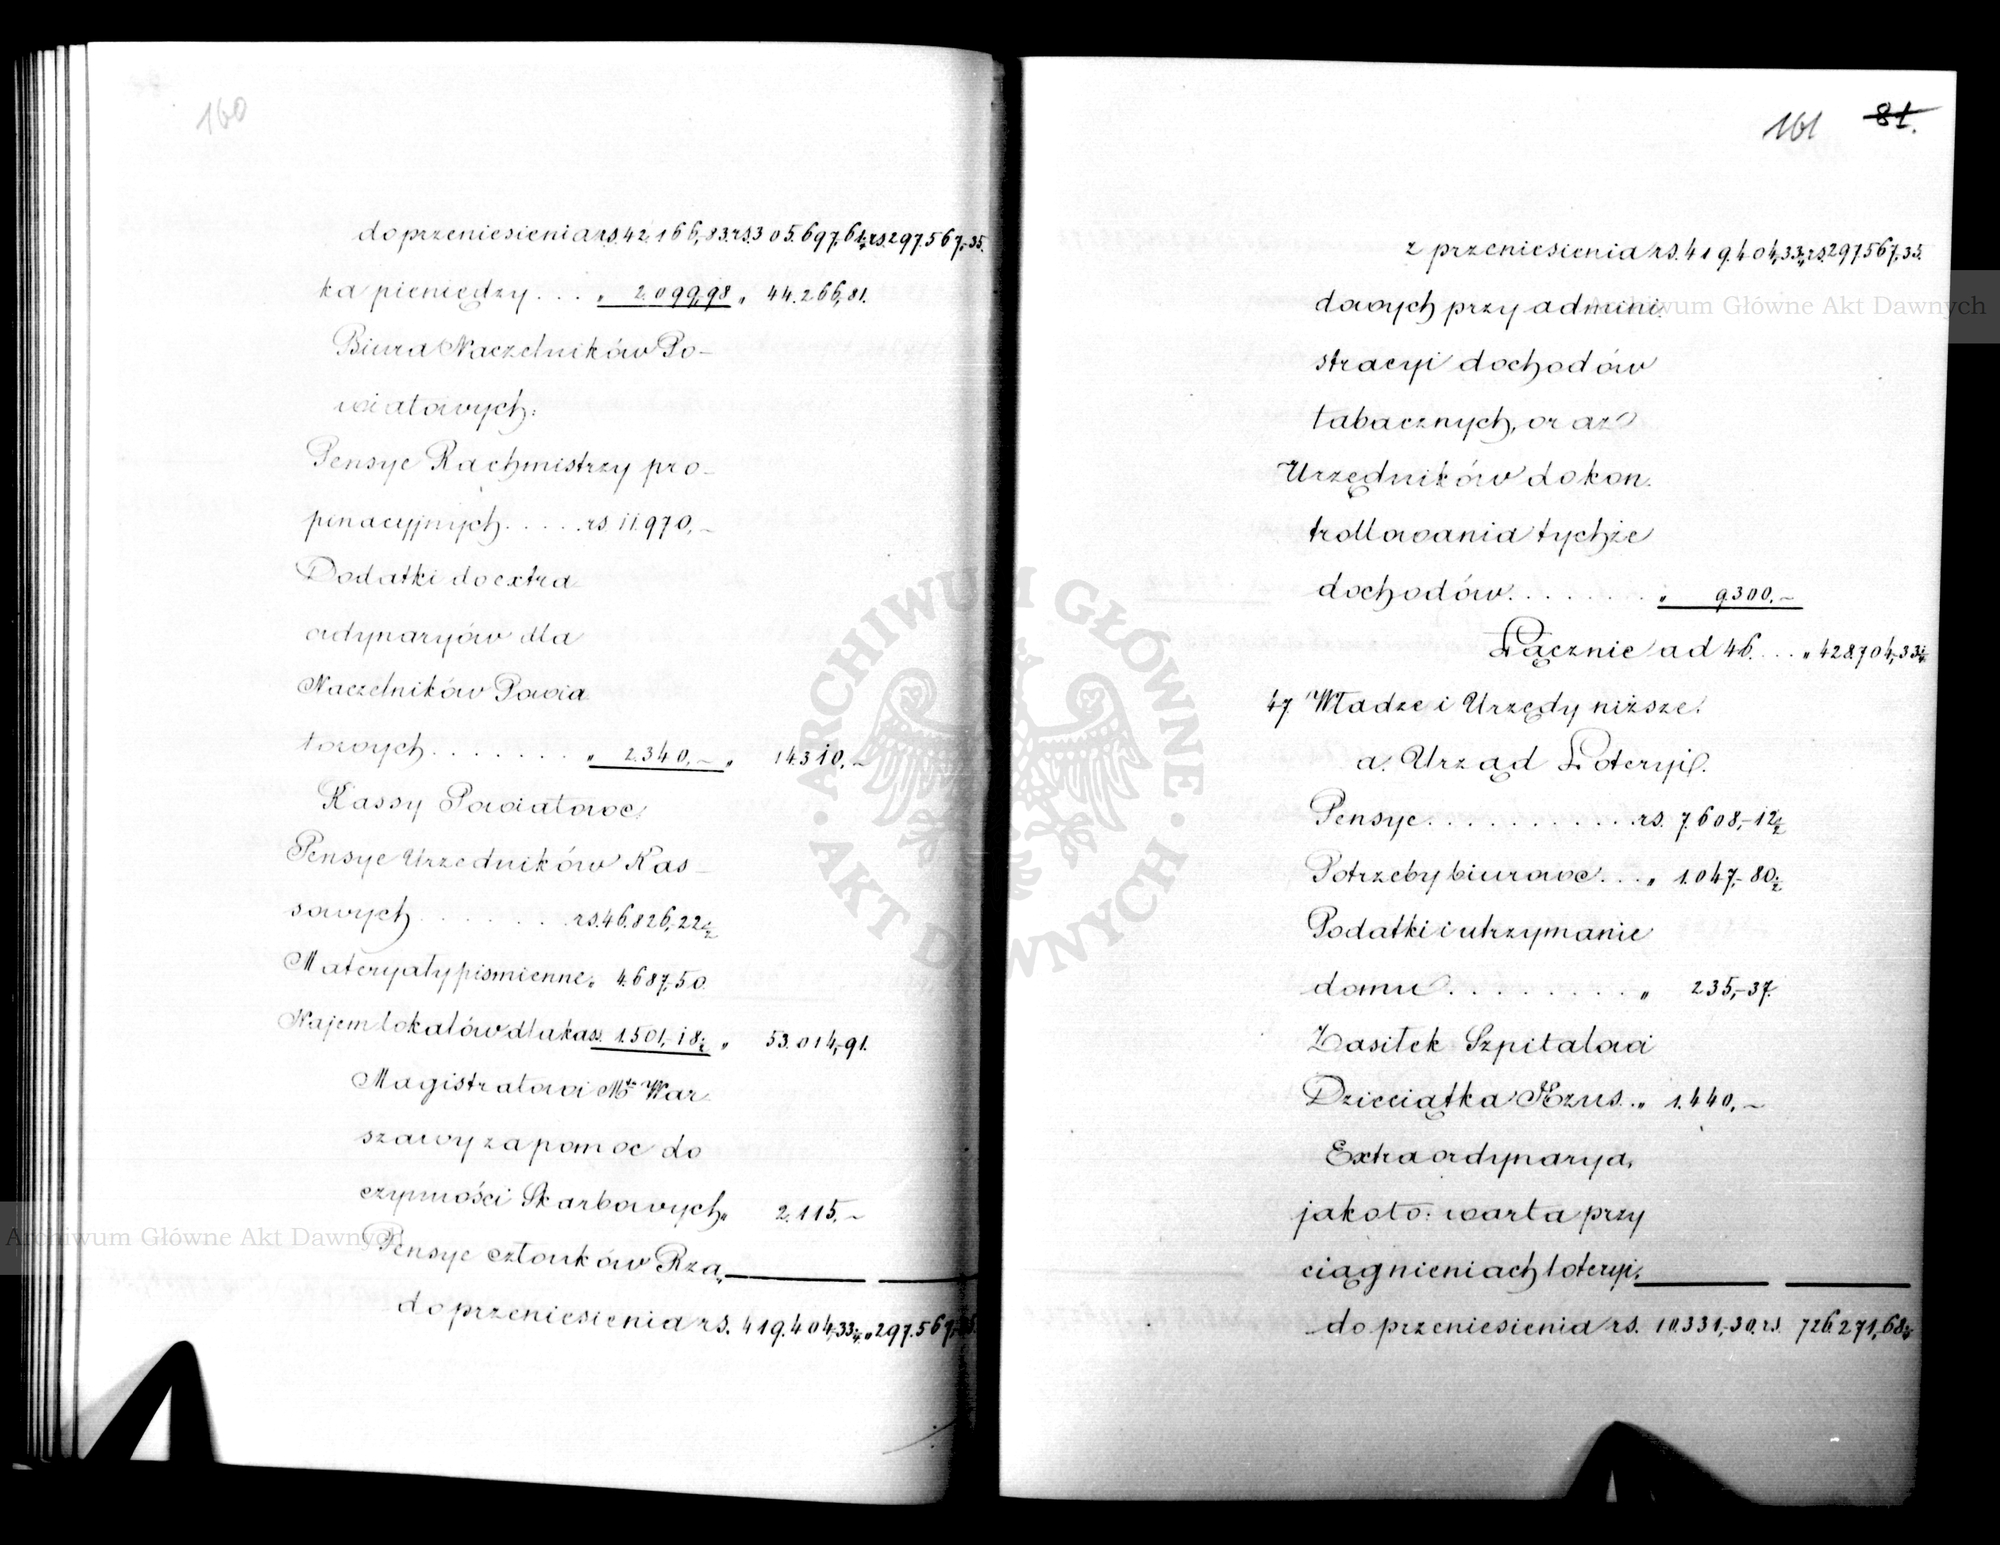 160
do przeniesienia rs. 42.166,83. rs. 305.697,61¼ rs. 297.567,35.
ka pieniędzy . . . „ 2.099,98 „ 44.266,81.
Biura Naczelników Po-
wiatowych:
Pensye Rachmistrzy pro-
pinacyjnych . . . . . rs 11.970,—
Dodatki do extra
ordynaryów dla
Naczelników Powia
towych . . . . . . . „ 2.340,— „ 14310,—
Kassy Powiatowe:
Pensye Urzedników Kas-
sowych . . . . . . . rs. 46.826,22½
Materyały pismienne „ 4.687,50.
Najem lokalów dla kass. 1.501,18½ „ 53.014,91.
Magistratowi Mta War
szawy za pomoc do
czynności Skarbowych „ 2.115,—
Pensye członków Rza,
do przeniesienia rs. 419.404,33¼ „ 297.567,35.
161 81.
z przeniesienia rs. 419.404,33¼ rs. 297.567,35.
dowych przy admini.
stracyi dochodów
tabacznych, oraz
Urzędników do kon.
trollowania tychże
dochodów . . . . . . . „ 9300,—
Łącznie ad 46. . . . „ 428.704,33¼
47 Władze i Urzędy niższe:
a. Urząd Loteryi.
Pensye . . . . . . . . . . . rs. 7.608,12½
Potrzeby biurowe . . . „ 1.047,80½
Podatki i utrzymanie
domu . . . . . . . . . „ 235,37.
Zasiłek Szpitalowi
Dzieciątka Jezus . „ 1.440,—
Extraordynarya,
jakoto: warta przy
ciągnieniach loteryi,
do przeniesienia rs. 10.331,30. rs. 726.271,68¼
ARCHIWUM GŁÓWNE AKT DAWNYCH
Archiwum Główne Akt Dawnych
Archiwum Główne Akt Dawnych